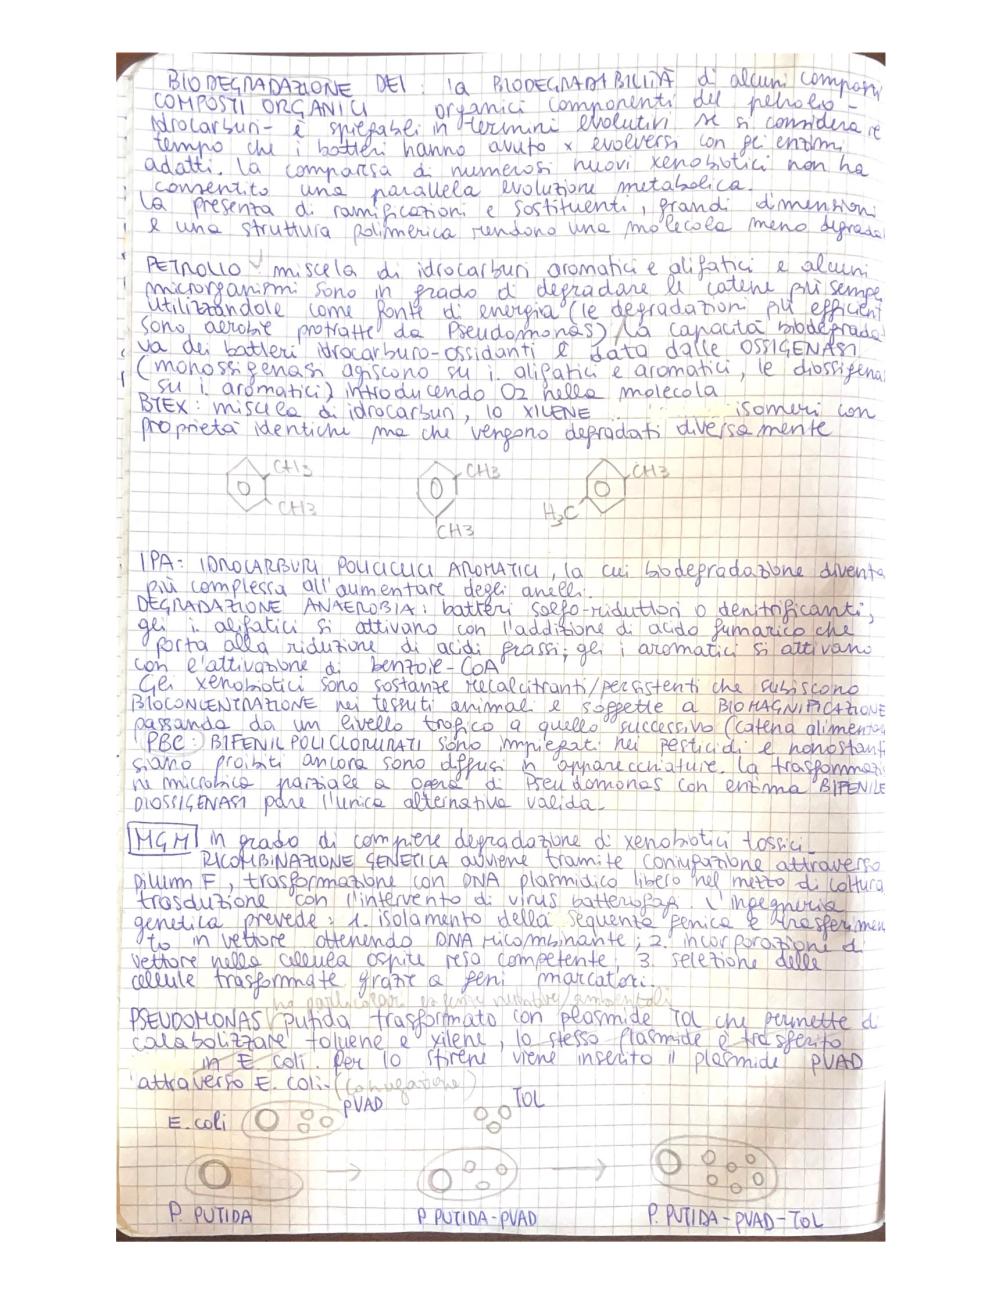 BIODEGRADAZIONE DEI : la BIODEGRADABILITÀ di alcuni composti
COMPOSTI ORGANICI organici componenti del petrolio -
idrocarburi - è spiegabili in termini evolutivi se si considera il
tempo che i batteri hanno avuto x evolversi con gli enzimi
adatti. La comparsa di numerosi nuovi xenobiotici non ha
consentito una parallela evoluzione metabolica.
La presenza di ramificazioni e sostituenti, grandi dimensioni
e una struttura polimerica rendono una molecola meno degrada
PETROLIO miscela di idrocarburi aromatici e alifatici e alcuni
microrganismi sono in grado di degradare le catene più sempl
utilizzandole come fonte di energia (le degradazioni più efficient
sono aerobie protratte da Pseudomonas) La capacità biodegrada
va dei batteri idrocarburo-ossidanti è data dalle OSSIGENASI
(monossigenasi agiscono su i. alifatici e aromatici, le diossigena
su i. aromatici) introducendo O2 nella molecola
BTEX: miscela di idrocarburi, lo XILENE isomeri con
proprietà identiche ma che vengono degradati diversamente
CH3 CH3 CH3
CH3 H3C
CH3
IPA: IDROCARBURI POLICICLICI AROMATICI, la cui biodegradazione diventa
più complessa all'aumentare degli anelli.
DEGRADAZIONE ANAEROBIA: batteri solfo-riduttori o denitrificanti,
gli i. alifatici si attivano con l'addizione di acido fumarico che
porta alla riduzione di acidi grassi; gli i aromatici si attivano
con l'attivazione di benzoil-CoA
Gli xenobiotici sono sostanze recalcitranti/persistenti che subiscono
BIOCONCENTRAZIONE nei tessuti animali e soggette a BIOMAGNIFICAZIONE
passando da un livello trofico a quello successivo (catena alimenta
PBC: BIFENIL POLICLORURATI sono impiegati nei pesticidi e nonostant
siano proibiti ancora sono diffusi in apparecchiature. La trasformazi
ne microbica parziale a opera di Pseudomonas con enzima BIFENILE
DIOSSIGENASI pare l'unica alternativa valida.
MGM in grado di compiere degradazione di xenobiotici tossici.
RICOMBINAZIONE GENETICA avviene tramite coniugazione attraverso
pilum F, trasformazione con DNA plasmidico libero nel mezzo di coltura,
trasduzione con l'intervento di virus batteriofagi. L'ingegneria
genetica prevede: 1. isolamento della sequenza genica e trasferimen
to in vettore ottenendo DNA ricombinante; 2. incorporazione di
vettore nella cellula ospite resa competente; 3. selezione delle
cellule trasformate grazie a geni marcatori.
ha particolari
PSEUDOMONAS putida trasformato con plasmide TOL che permette di
catabolizzare toluene e xilene, lo stesso plasmide è trasferito
in E. coli. Per lo stirene viene inserito il plasmide PVAD
attraverso E. coli. (coniugazione)
E. coli PVAD TOL
P. PUTIDA P PUTIDA-PVAD P. PUTIDA-PVAD-TOL